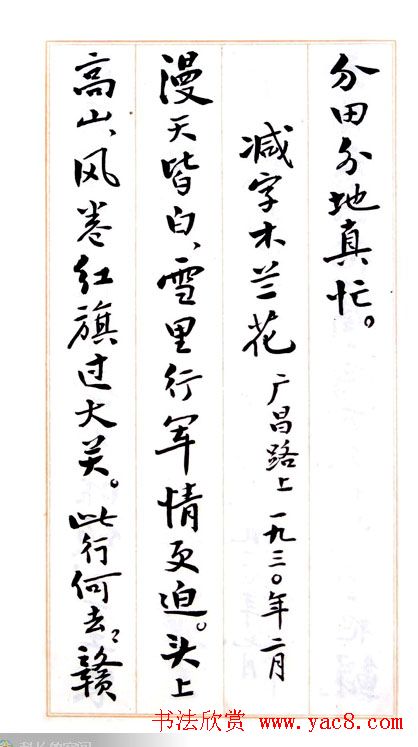 分田分地真忙。
减字木兰花 广昌路上 一九三〇年二月
漫天皆白、雪里行军情更迫。头上
高山、风卷红旗过大关。此行何去?赣
书法欣赏 www.yac8.com